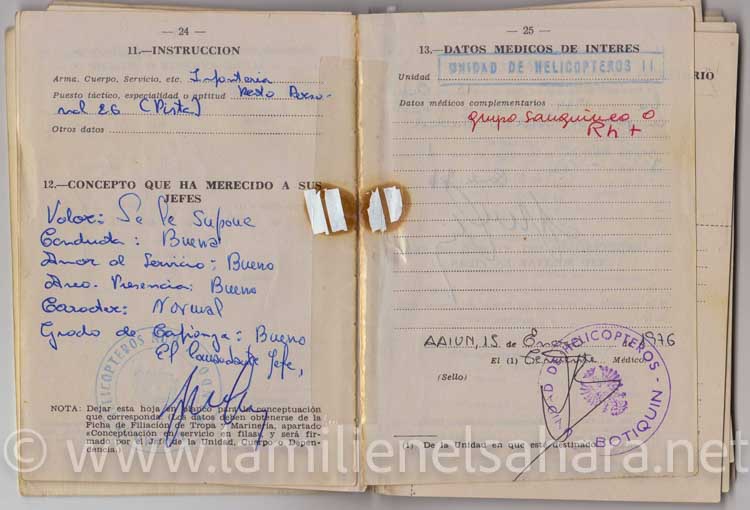 — 24 —
11.—INSTRUCCION
Arma, Cuerpo, Servicio, etc. Infanteria
Puesto táctico, especialidad o aptitud Resto Perso-
nal EG (Pista)
Otros datos
12.—CONCEPTO QUE HA MERECIDO A SUS
JEFES
Valor: Se le Supone
Conducta: Buena
Amor al Servicio: Bueno
Aseo. Presencia: Bueno
Caracter: Normal
Grado de Confianza: Bueno
El Comandante Jefe,
NOTA: Dejar esta hoja en blanco para la conceptuación
que corresponda. (Los datos deben obtenerse de la
Ficha de Filiación de Tropa y Marinería, apartado
«Conceptuación en servicio en filas» y será fir-
mado por el Jefe de la Unidad, Cuerpo o Depen-
dencia.)
HELICOPTEROS
— 25 —
13.—DATOS MEDICOS DE INTERES
Unidad UNIDAD DE HELICOPTEROS II
Datos médicos complementarios
grupo sanguineo O
Rh +
AAIUN, 15 de Enero 1976
El (1) Teniente Médico
(Sello)
UNIDAD DE HELICOPTEROS - BOTIQUIN -
(1) De la Unidad en que esté destinado.
RIO
© www.lamilienelsahara.net